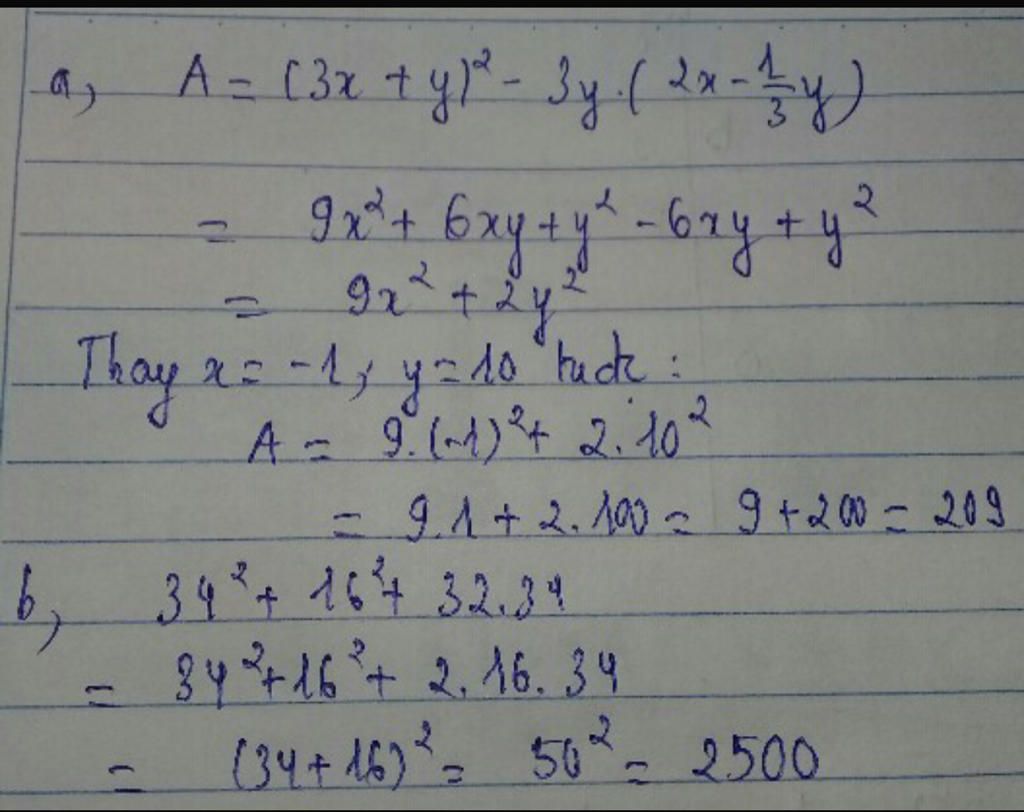 a, A = (3x + y)² - 3y.(2x - 1/3 y)
= 9x² + 6xy + y² - 6xy + y²
= 9x² + 2y²
Thay x = -1, y = 10 :
A = 9.(-1)² + 2.10²
= 9.1 + 2.100 = 9 + 200 = 209
b, 34² + 16² + 32.34
= 34² + 16² + 2.16.34
= (34 + 16)² = 50² = 2500